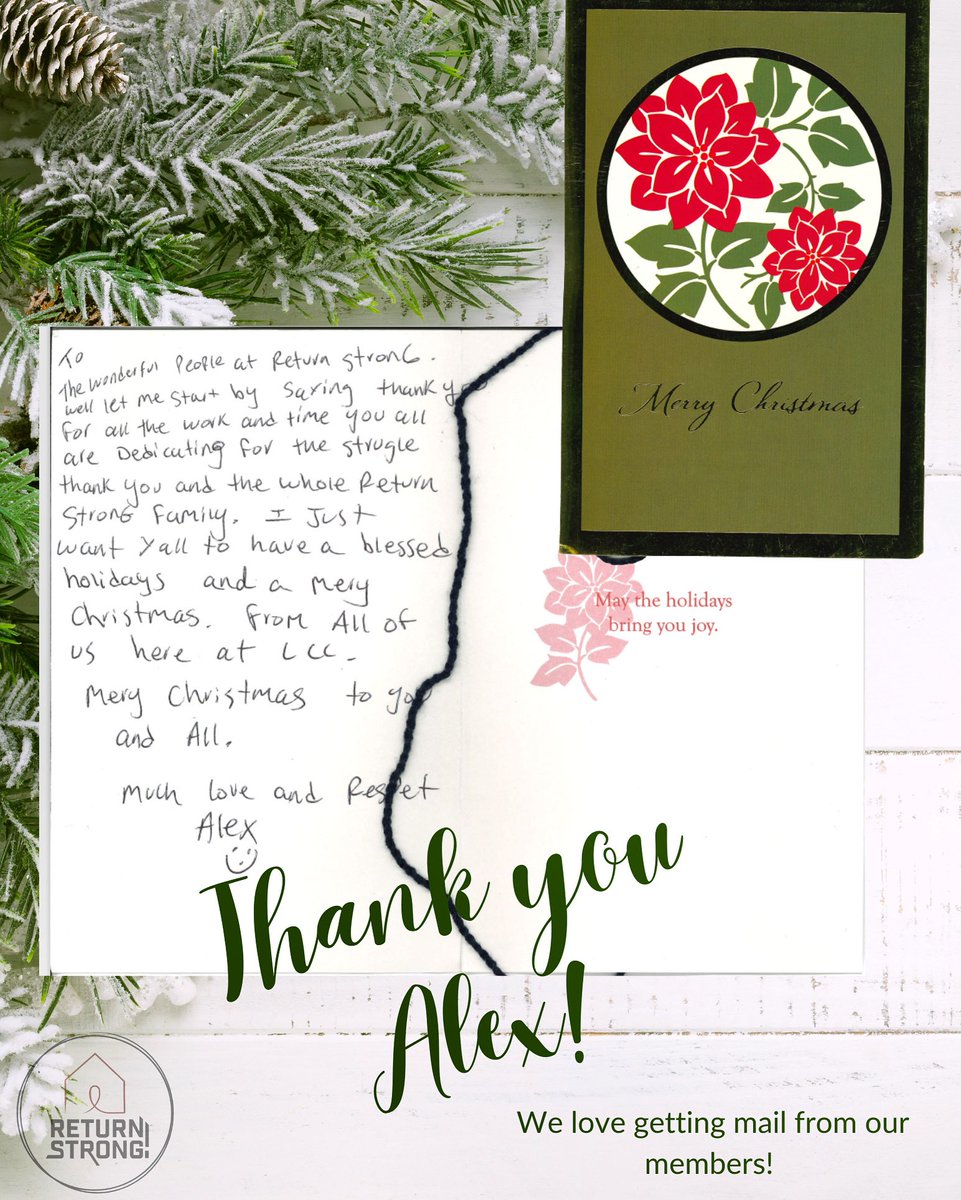 Merry Christmas
To
The wonderful People at Return strong.
well let me start by saying thank you
for all the work and time you all
are Dedicating for the strugle
thank you and the whole Return
Strong Family. I Just
want Yall to have a blessed
holidays and a mery
Christmas. From All of
us here at LCC.
Mery Christmas to you
and All.
Much love and Respet
Alex
May the holidays
bring you joy.
Thank you
Alex!
RETURN
STRONG!
We love getting mail from our
members!